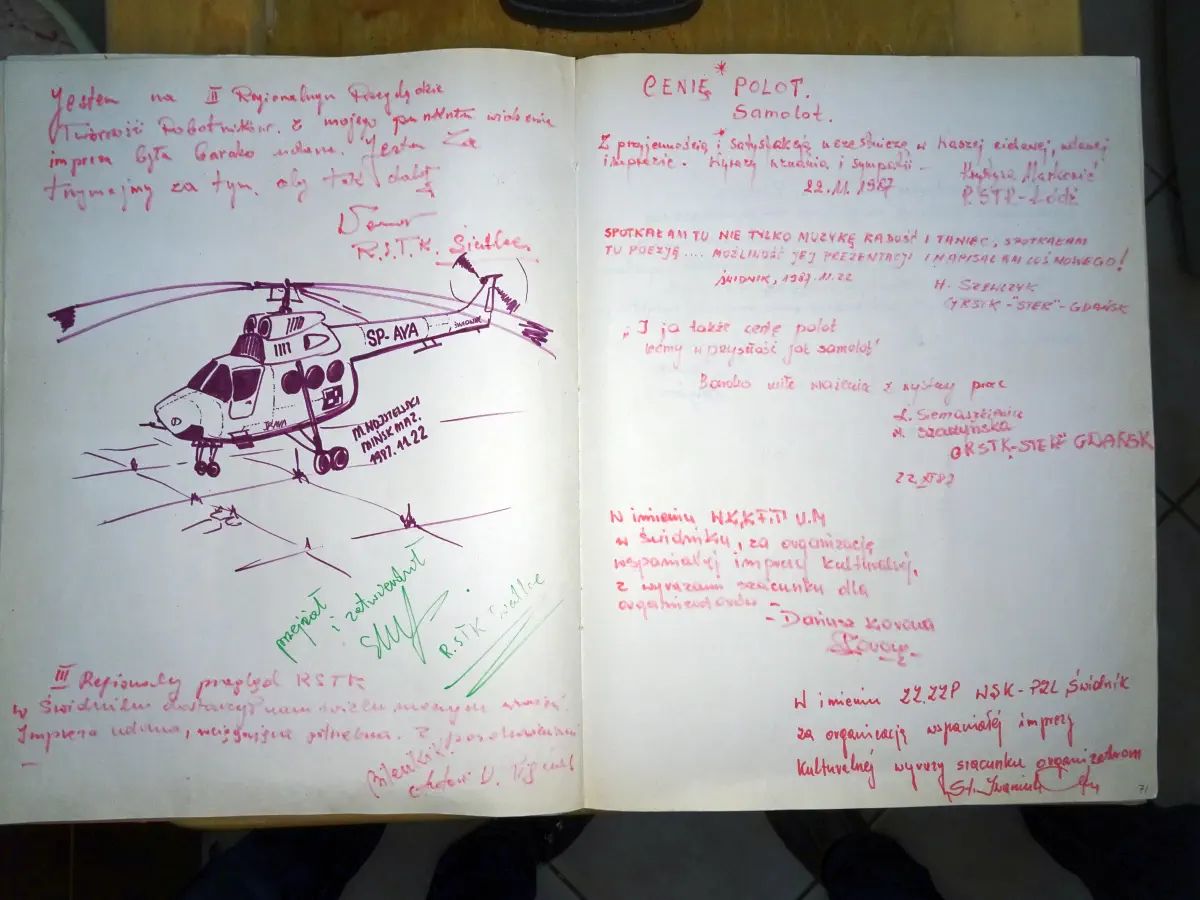 Jestem na II Regionalnym Przeglądzie
Twórczości Robotników. Z mojego punktu widzenia
impreza była bardzo udana. Jestem za
trzymajmy za tym, aby tak dalej
R.S.T.K. Siedlce
SP-AYA
ŚWIDNIK
M. WOJDTELSKI
MIŃSK MAZ.
1987.11.22
przejrzał
i zatwierdził
R.STK Siedlce
III Regionalny przegląd RSTK
w Świdniku dostarczył nam wielu
Impreza udana, potrzebna. Z
CENIĘ* POLOT.
Samolot.
Z przyjemnością i* satysfakcją uczestniczę w Naszej ciekawej, udanej
imprezie. Wyrazy uznania i sympatii -
22.11.1987
RSTK-Łódź
SPOTKAŁAM TU NIE TYLKO MUZYKĘ RADOŚĆ I TANIEC, SPOTKAŁAM
TU POEZJĘ .... MOŻLIWOŚĆ JEJ PREZENTACJI I NAPISAŁAM COŚ NOWEGO!
ŚWIDNIK, 1987.11.22
H. SZEWCZYK
GRSTK-"STEK"-GDAŃSK
"I ja także cenię polot
lećmy w przyszłość jak samolot"
Bardzo miłe wrażenia z wystawy prac
Szadzyńska
GRSTK-"STEK" GDAŃSK
22.XI 87
W imieniu WZKKFiT U.M
w Świdniku, za organizację
wspaniałej imprezy kulturalnej,
z wyrazami szacunku dla
organizatorów
- Dariusz Korona
W imieniu ZZ.ZZP WSK-PZL Świdnik
za organizację wspaniałej imprezy
kulturalnej wyrazy szacunku organizatorom
St. Iwaniuk
71